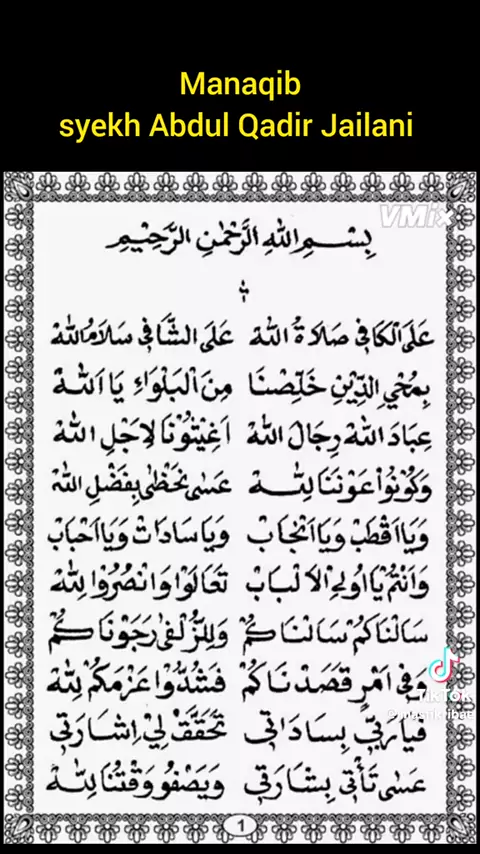 Manaqib
syekh Abdul Qadir Jailani
VMix
بِسْمِ اللهِ الرَّحْمٰنِ الرَّحِيْمِ
عَلَى الْكَافِى صَلَاةُ اللهْ عَلَى الشَّافِى سَلَامُ اللهْ
بِمُحْيِ الدِّيْنِ خَلِّصْنَا مِنَ الْبَلْوَاءِ يَا اَللهْ
عِبَادَ اللهْ رِجَالَ اللهْ اَغِيْثُوْنَا لِاَجْلِ اللهْ
وَكُوْنُوْا عَوْنَنَا لِلّٰهْ عَسٰى نَحْظٰى بِفَضْلِ اللهْ
وَيَا اَقْطَبْ وَيَا اَنْجَابْ وَيَا سَادَاتْ وَيَا اَحْبَابْ
وَاَنْتُمْ يَا اُولِى الْاَلْبَابْ تَعَالَوْا وَانْصُرُوْا لِلّٰهْ
سَأَلْنَاكُمْ سَأَلْنَاكُمْ وَلِلزُّلْفٰى رَجَوْنَاكُمْ
وَفِى اَمْرٍ قَصَدْنَاكُمْ فَشُدُّوْا عَزْمَكُمْ لِلّٰهْ
فَيَارَبِّى بِسَادَاتِى تَحَقَّقْ لِى اِشَارَتِى
عَسٰى تَأْتِى بِشَارَتِى وَيَصْفُو وَقْتُنَا لِلّٰهْ
TikTok
1